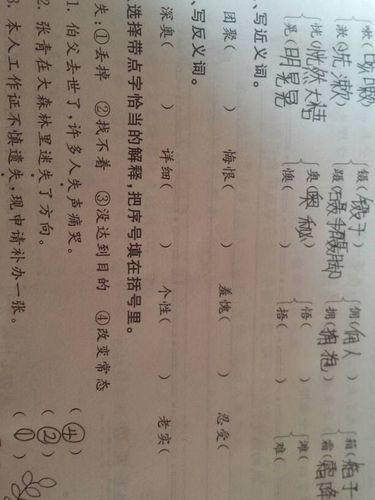 嗽(咳嗽) 镊(镊子) 佣(佣人) 箱(箱子
漱(洗漱) 蹑(蹑手蹑脚) 拥(拥抱) 霜(霜降
恍(恍然大悟 奥(奥秘) 悟( ) 滩(
晃(明晃晃 懊( ) 梧( ) 难(
、写近义词。
团聚( ) 悔恨( ) 羞愧( ) 忍受(
、写反义词。
深奥( ) 详细( ) 个性( ) 老实(
选择带点字恰当的解释,把序号填在括号里。
失:①丢掉 ②找不着 ③没达到目的 ④改变常态
1. 伯父去世了,许多人失声痛哭。 (④)
2. 张青在大森林里迷失了方向。 (②)
3. 本人工作证不慎遗失,现申请补办一张。 (①)